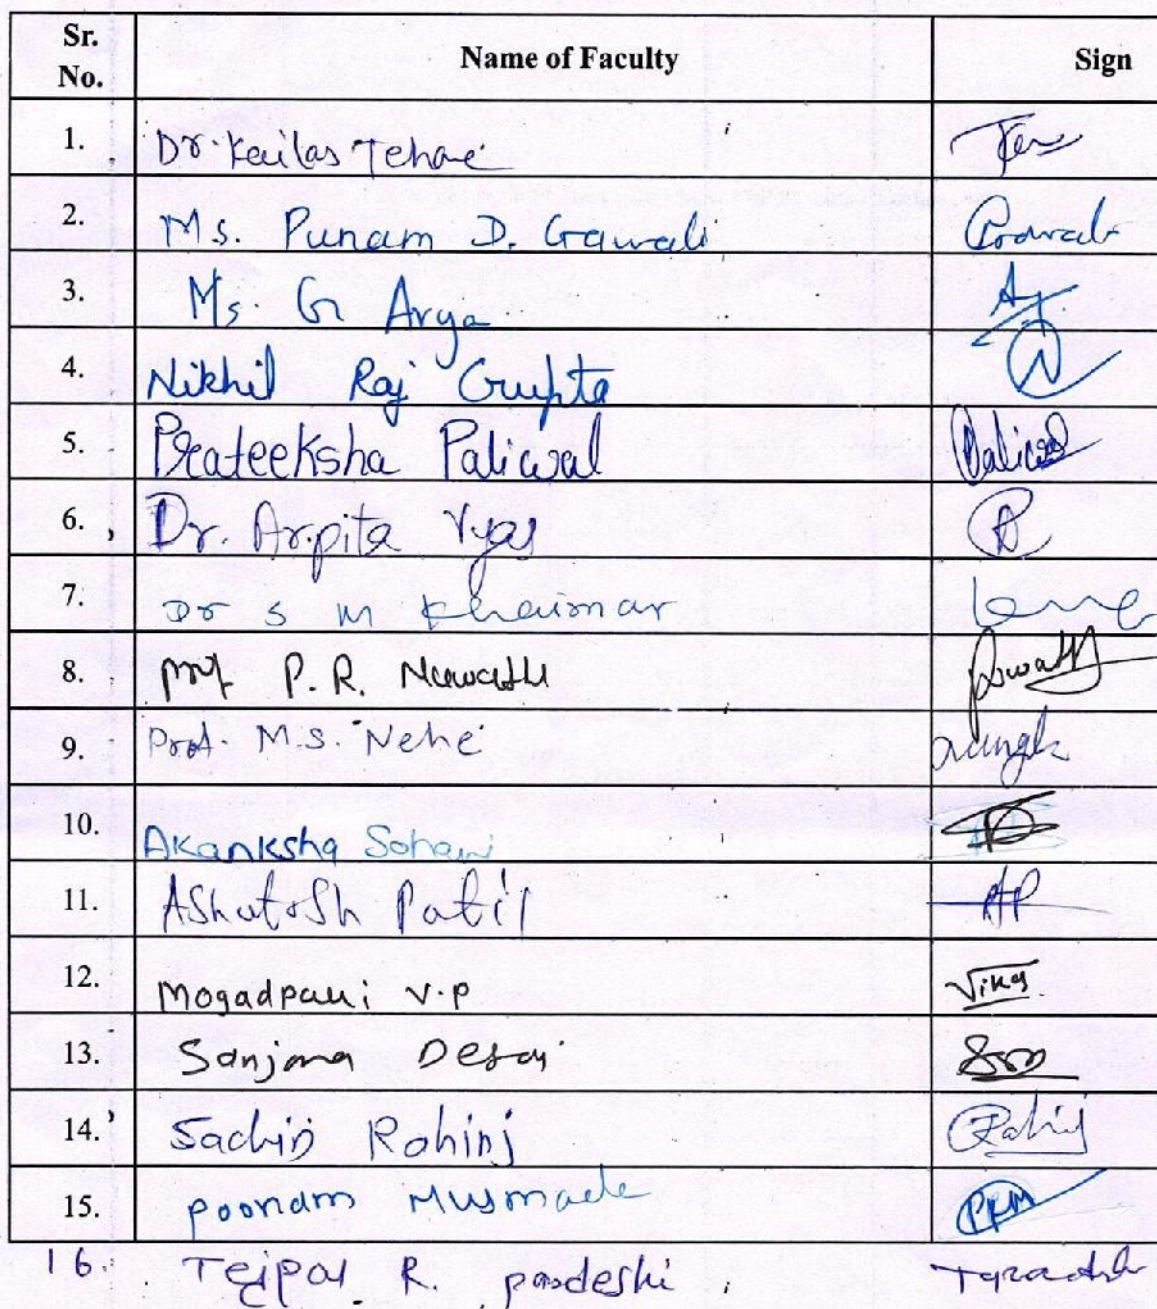 Sr. No. Name of Faculty Sign
1. Dr. Kailas Tehare
2. Ms. Punam D. Gawali Gawali
3. Ms. G Arya Ay
4. Nikhil Raj Gupta N
5. Prateeksha Paliwal Paliwal
6. Dr. Arpita Vyas A
7. Dr S M Khairnar
8. Prof P. R. Nawathe
9. Prof. M.S. Nehe
10. Akanksha
11. Ashutosh Patil AP
12. Mogadpalli V.P Vikas
13. Sanjana Desai
14. Sachin Rohinj Rohinj
15. Poonam Musmade PRM
16. Tejpal R. pardeshi